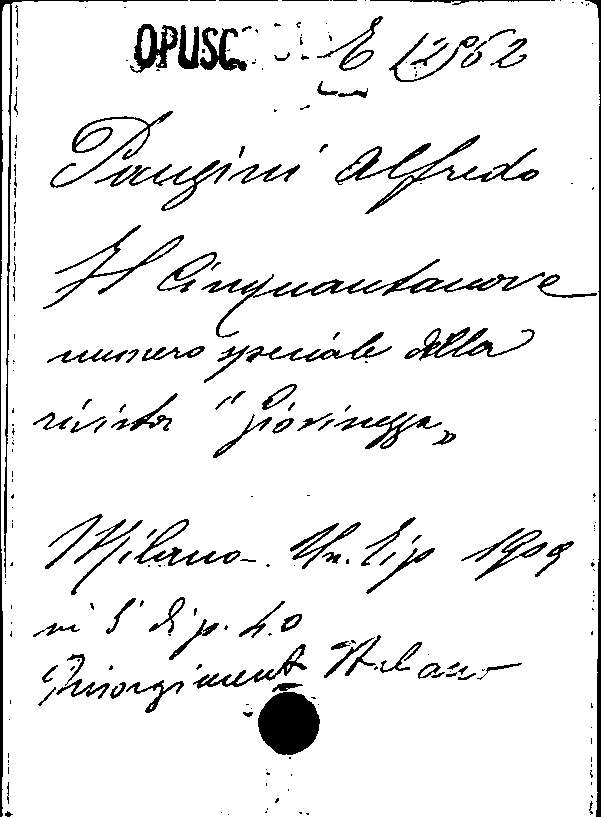 OPUSC. E 12962
Panzini Alfredo
Il Cinquantanove
numero speciale della
rivista "Giovinezza"
Milano - Un. Tip 1909
in 8° di p. 40
Risorgimento Italiano